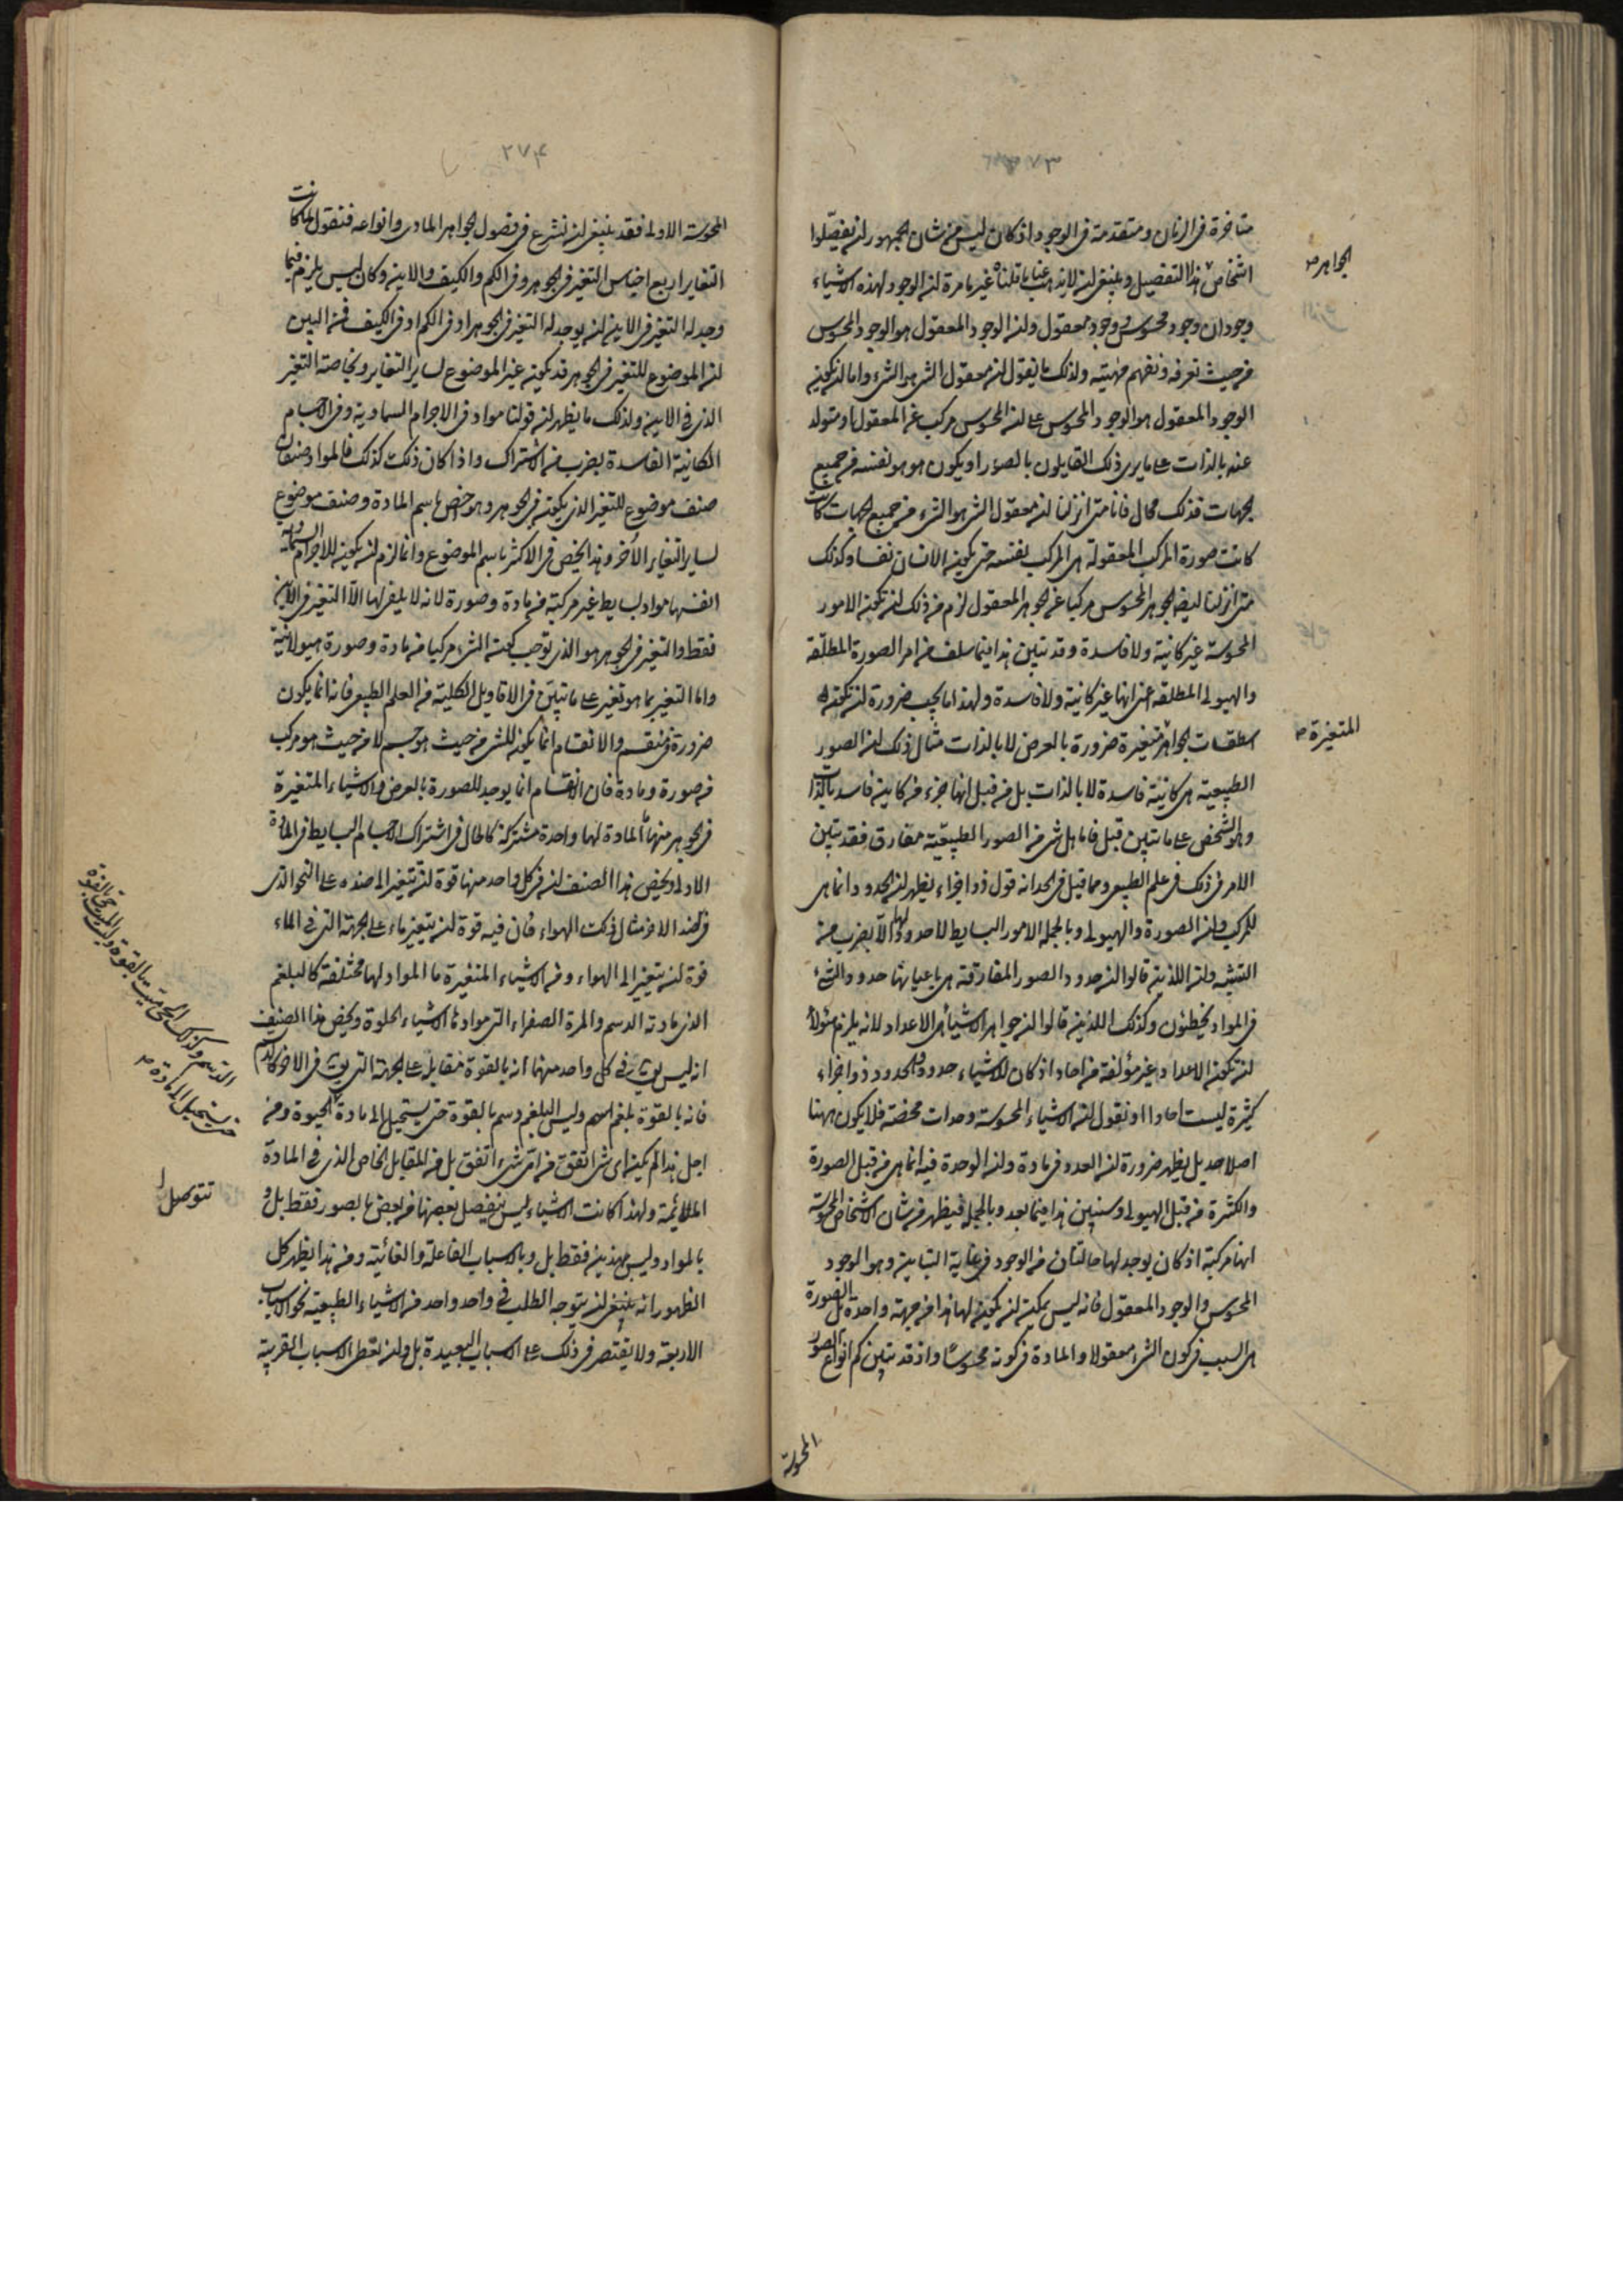 ٢٧٣
متاخرة فى الزمان ومتقدمة فى الوجود اذ كان ليس من شان الجمهور ان يفصّلوا
اشخاص هذا التفصيل وينبغى ان لا يذهب عنا ما قلناه غير ما مرة ان الوجود لهذه الاشياء
وجودان وجود محسوس ووجود معقول وان الوجود المعقول هو الوجود المحسوس
من حيث نعرفه ونفهم مهيته ولذلك ما يقول ان معقول الشى هو الشىء واما ان يكون
الوجود المعقول هو الوجود المحسوس على ان المحسوس مركب عن المعقول او متولد
عنه بالذات على ما يرى ذلك القايلون بالصور او يكون هو هو نفسه من جميع
الجهات فذلك محال فانا متى انزلنا ان معقول الشى هو الشىء من جميع الجهات كانت
كانت صورة المركب المعقولة هى المركب بنفسه حتى يكون الانسان نفسا وكذلك
متى انزلنا ايضا الجوهر المحسوس مركبا عن الجوهر المعقول لزم من ذلك ان تكون الامور
المحسوسة غير كائنة ولا فاسدة وقد تبين هذا فيما سلف من امر الصورة المطلقة
والهيولى المطلقة اعنى انها غير كائنة ولا فاسدة ولهذا ما يجب ضرورة ان تكون
اسطقسات الجواهر متغيرة ضرورة بالعرض لا بالذات مثال ذلك ان الصور
الطبيعية هى كائنة فاسدة لا بالذات بل من قبل انها جزء من كاين فاسد بالذات
وهو الشخص على ما تبين قبل فاما هل شى من الصور الطبيعية مفارق فقد تبين
الامر فى ذلك فى علم الطبيعى ومما قيل فى الحد انه قول ذو اجزاء يظهر ان الحدود انما هى
للمركب من الصورة والهيولى وبالجملة الامور البسايط لا حدود لها الا بضرب من
التشبيه وان الذين قالوا ان حدود الصور المفارقة هى باعيانها حدود الشىء
فى المواد يخطئون وكذلك الذين قالوا ان جواهر الاشياء هى الاعداد لانه يلزم هولاء
ان تكون الاعداد غير مؤلفة من احاد اذ كان للاشياء حدود والحدود ذو اجزاء
كثيرة ليست احادا او نقول ان الاشياء المحسوسة وحدات محضة فلا يكون ههنا
اصلا حد بل يظهر ضرورة ان العدد فى مادة وان الوحدة فيه انما هى من قبل الصورة
والكثرة من قبل الهيولى وسنبين هذا فيما بعد وبالجملة فيظهر من شان الاشخاص المحسوسة
انها مركبة اذ كان يوجد لها حالتان من الوجود فى غاية التباين وهو الوجود
المحسوس والوجود المعقول فانه ليس يمكن ان يكون لها هذا من جهة واحدة بل الصورة
هى السبب فى كون الشىء معقولا والمادة فى كونه محسوسا واذ قد تبين كم انواع الصور
المحسوسة
الجواهر صح
المتغيرة صح
٢٧۴
المحسوسة الاولى فقد ينبغى ان نشرع فى فصول الجواهر المادى وانواعه فنقول لما كانت
التغاير اربع اجناس التغير فى الجوهر وفى الكم والكيف والاين وكان ليس يلزم فيما
وجد له التغير فى الاين ان يوجد له التغير فى الجوهر او فى الكم او فى الكيف فمن البين
ان الموضوع للتغير فى الجوهر قد يكون غير الموضوع لساير التغاير وبخاصة التغير
الذى فى الاين ولذلك ما يظهر ان قولنا مواد فى الاجرام السماوية وفى الاجسام
الكائنة الفاسدة بضرب من الاشتراك واذا كان ذلك كذلك فالمواد صنفان
صنف موضوع للتغير الذى يكون فى الجوهر وهو اخص باسم المادة وصنف موضوع
لساير التغاير الأخر وهذا يخص فى الاكثر باسم الموضوع وانما لزم ان يكون للاجرام السماوية
انفسها مواد بسايط غير مركبة من مادة وصورة لانه لا يلفى لها الا التغير فى الاين
فقط والتغير فى الجوهر هو الذى توجب كون الشىء مركبا من مادة وصورة هيولانية
واما التغير بما هو تغير على ما تبين فى الاقاويل الكلية من العلم الطبيعى فانه انما يكون
ضرورة فى منقسم والانقسام انما يكون للشى من حيث هو جسم لا من حيث هو مركب
من صورة ومادة فان الانقسام انما يوجد للصورة بالعرض والاشياء المتغيرة
فى الجوهر منها ما المادة لها واحدة مشتركة كالحال فى اشتراك الاجسام البسايط فى المادة
الاولى ويخص هذا الصنف ان فى كل واحد منها قوة ان يتغير الى ضده على النحو الذى
فى ضد الاخر مثال ذلك الهواء فان فيه قوة ان يتغير ماء على الجهة التى فى الماء
قوة ان يتغير الى الهواء ومن الاشياء المتغيرة ما المواد لها مختلفة كالبلغم
الذى مادته الدسم والمرة الصفراء التى موادها الاشياء الحلوة ويخص هذا الصنف
انه ليس يوجد فى كل واحد منهما انه بالقوة مقابل على الجهة التى يوجد فى الاخر كالدسم
فانه بالقوة بلغم وليس البلغم دسم بالقوة حتى يستحيل الى مادة الحيوة ومن
اجل هذا لم يكن اى شى اتفق من اى شىء اتفق بل من المقابل الخاص الذى فى المادة
الملائمة ولهذا كانت الاشياء ليس ينفصل بعضها من بعض بالصور فقط بل و
بالمواد وليس بهذين فقط بل وبالاسباب الفاعلة والغائية ومن هذا يظهر كل
الظهور انه ينبغى ان يتوجه الطلب فى واحد واحد من الاشياء الطبيعية نحو الاسباب
الاربعة ولا يقتصر فى ذلك على الاسباب البعيدة بل وان نعطى الاسباب القريبة
الدسم وكذلك الحى ميت بالقوة وليس الميت حى بالقوة
حتى يستحيل الى المادة صح